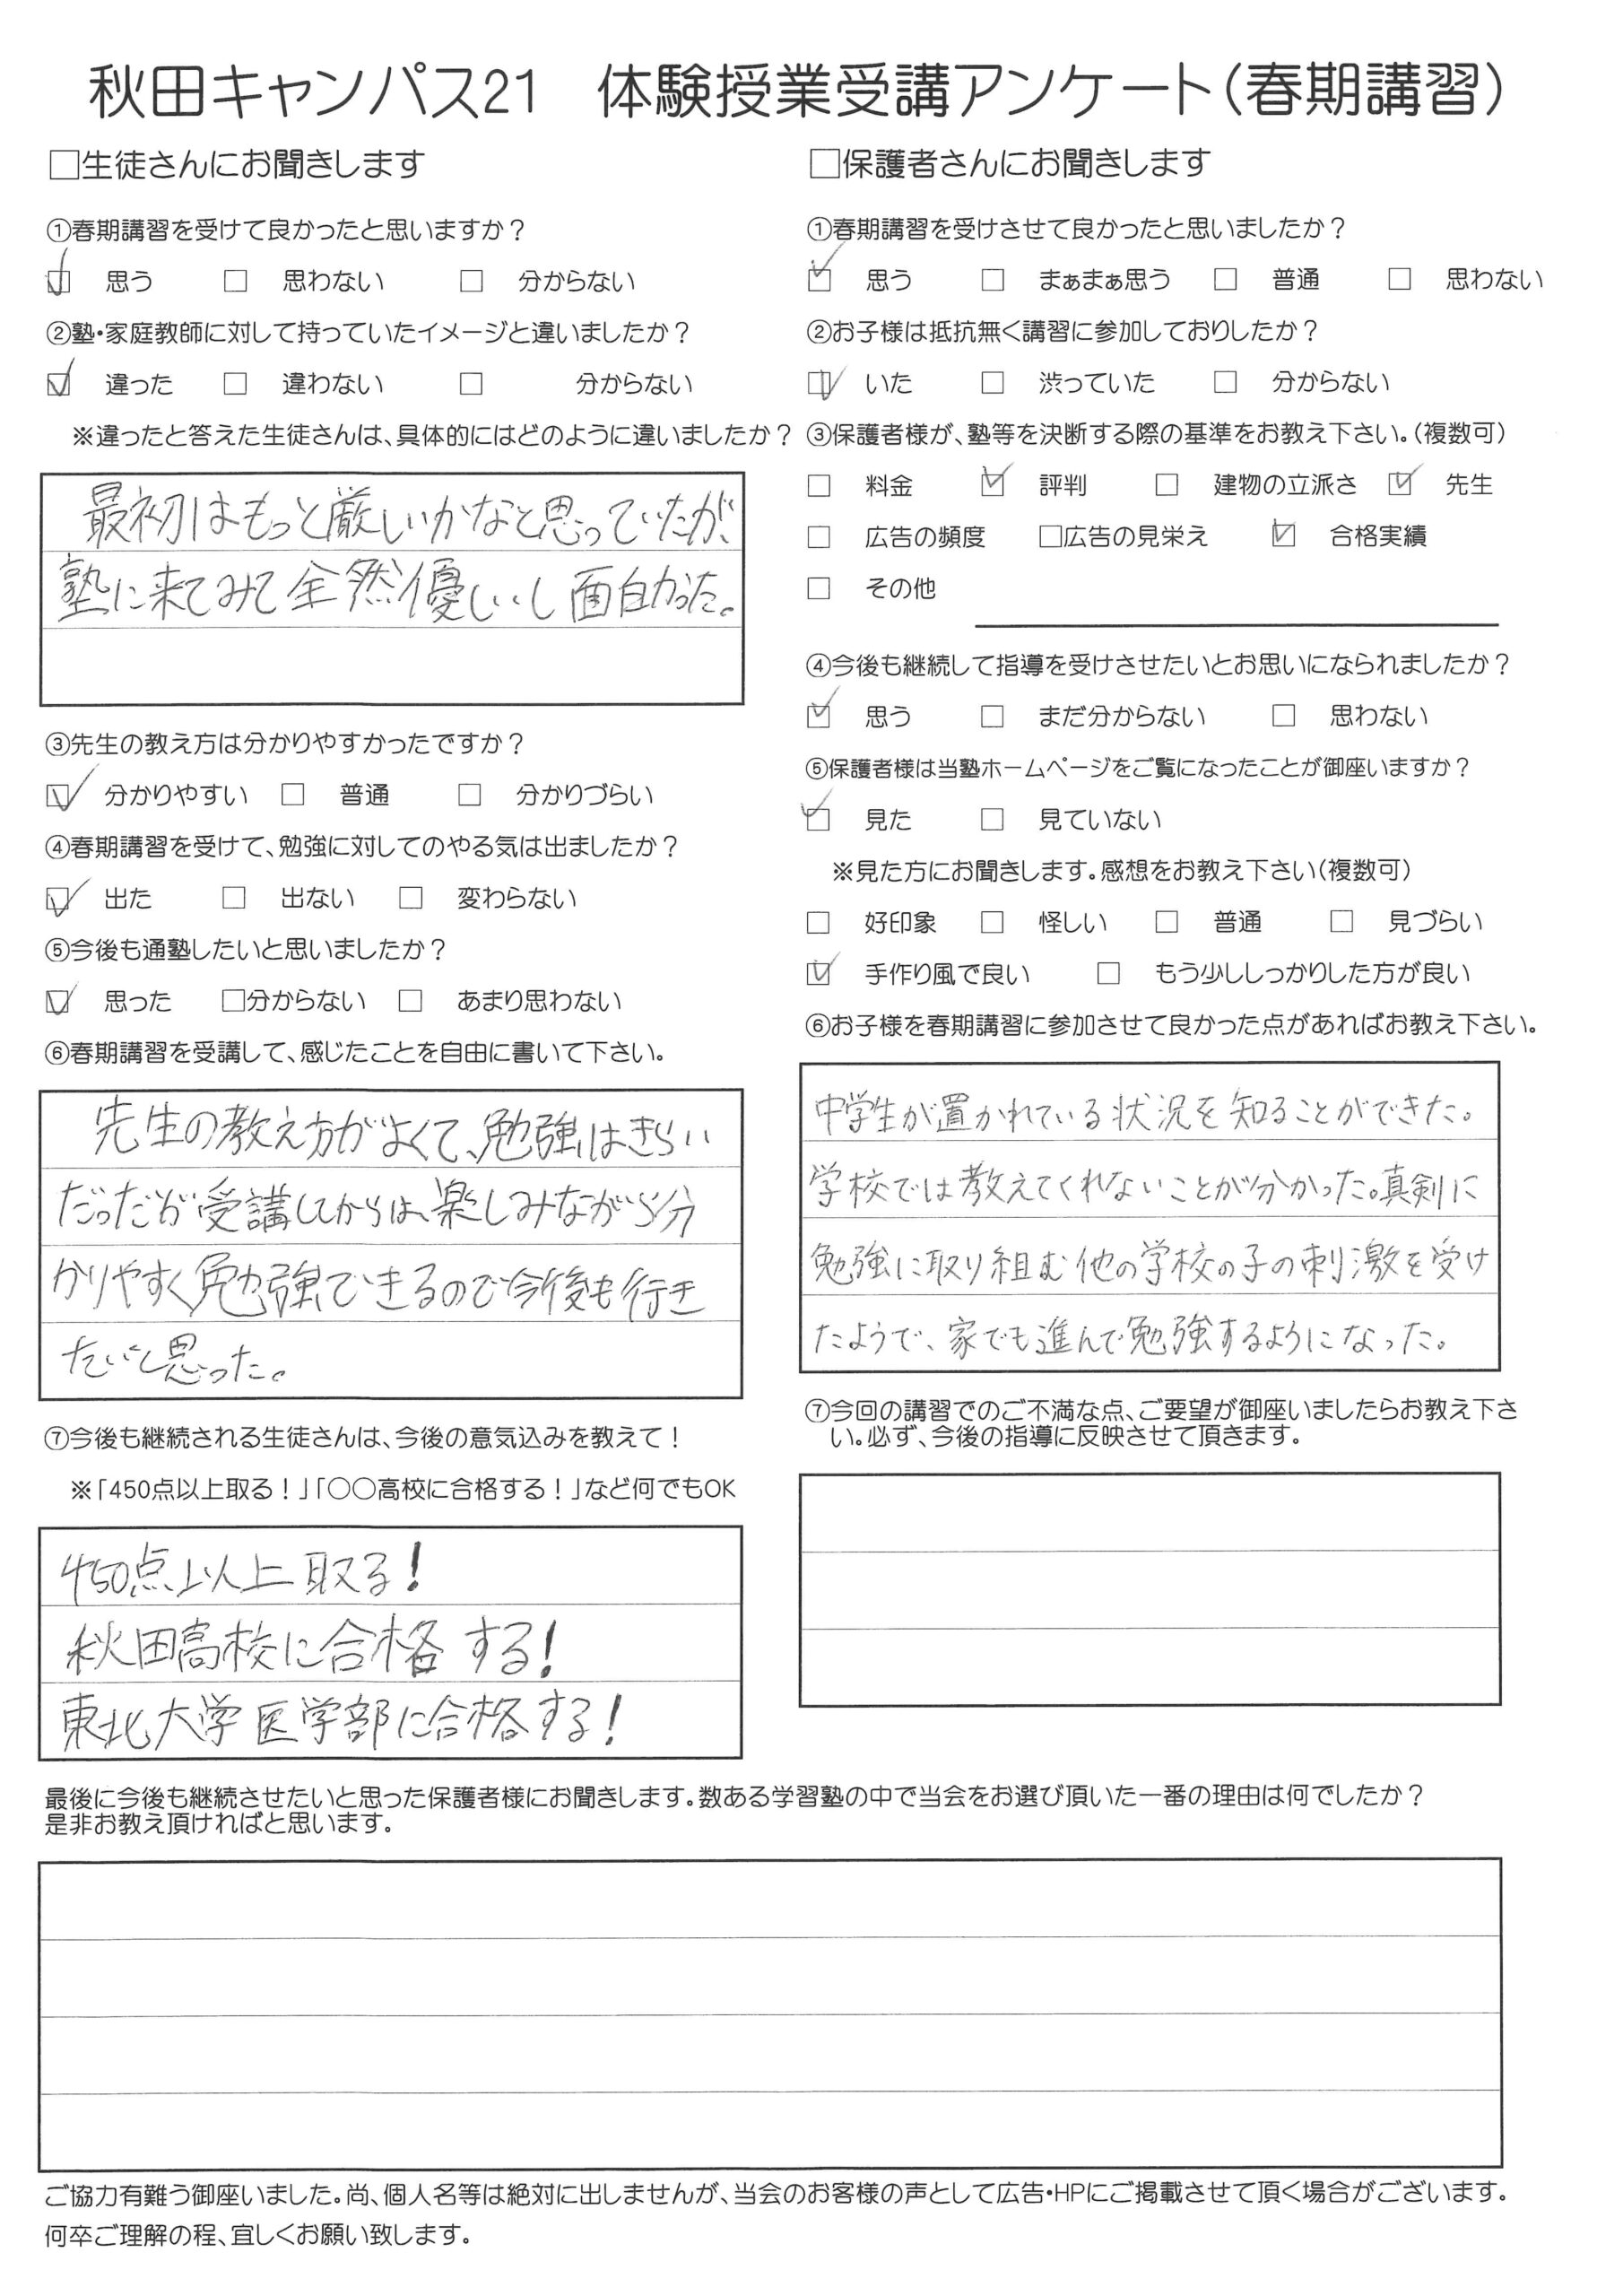 秋田キャンパス21　体験授業受講アンケート（春期講習）
□生徒さんにお聞きします
①春期講習を受けて良かったと思いますか？
☑ 思う □ 思わない □ 分からない
②塾・家庭教師に対して持っていたイメージと違いましたか？
☑ 違った □ 違わない □ 分からない
※違ったと答えた生徒さんは、具体的にはどのように違いましたか？
最初はもっと厳しいかなと思っていたが、
塾に来てみて全然優しいし面白かった。
③先生の教え方は分かりやすかったですか？
☑ 分かりやすい □ 普通 □ 分かりづらい
④春期講習を受けて、勉強に対してのやる気は出ましたか？
☑ 出た □ 出ない □ 変わらない
⑤今後も通塾したいと思いましたか？
☑ 思った □分からない □ あまり思わない
⑥春期講習を受講して、感じたことを自由に書いて下さい。
先生の教え方がよくて、勉強はきらい
だったが受講してからは、楽しみながら分
かりやすく勉強できるので今後も行き
たいと思った。
⑦今後も継続される生徒さんは、今後の意気込みを教えて！
※「450点以上取る！」「○○高校に合格する！」など何でもOK
450点以上取る！
秋田高校に合格する！
東北大学医学部に合格する！
□保護者さんにお聞きします
①春期講習を受けさせて良かったと思いましたか？
☑ 思う □ まぁまぁ思う □ 普通 □ 思わない
②お子様は抵抗無く講習に参加しておりしたか？
☑ いた □ 渋っていた □ 分からない
③保護者様が、塾等を決断する際の基準をお教え下さい。（複数可）
□ 料金 ☑ 評判 □ 建物の立派さ ☑ 先生
□ 広告の頻度 □広告の見栄え ☑ 合格実績
□ その他
④今後も継続して指導を受けさせたいとお思いになられましたか？
☑ 思う □ まだ分からない □ 思わない
⑤保護者様は当塾ホームページをご覧になったことが御座いますか？
☑ 見た □ 見ていない
※見た方にお聞きします。感想をお教え下さい（複数可）
□ 好印象 □ 怪しい □ 普通 □ 見づらい
☑ 手作り風で良い □ もう少ししっかりした方が良い
⑥お子様を春期講習に参加させて良かった点があればお教え下さい。
中学生が置かれている状況を知ることができた。
学校では教えてくれないことが分かった。真剣に
勉強に取り組む他の学校の子の刺激を受け
たようで、家でも進んで勉強するようになった。
⑦今回の講習でのご不満な点、ご要望が御座いましたらお教え下さ
い。必ず、今後の指導に反映させて頂きます。
最後に今後も継続させたいと思った保護者様にお聞きします。数ある学習塾の中で当会をお選び頂いた一番の理由は何でしたか？
是非お教え頂ければと思います。
ご協力有難う御座いました。尚、個人名等は絶対に出しませんが、当会のお客様の声として広告・HPにご掲載させて頂く場合がございます。
何卒ご理解の程、宜しくお願い致します。